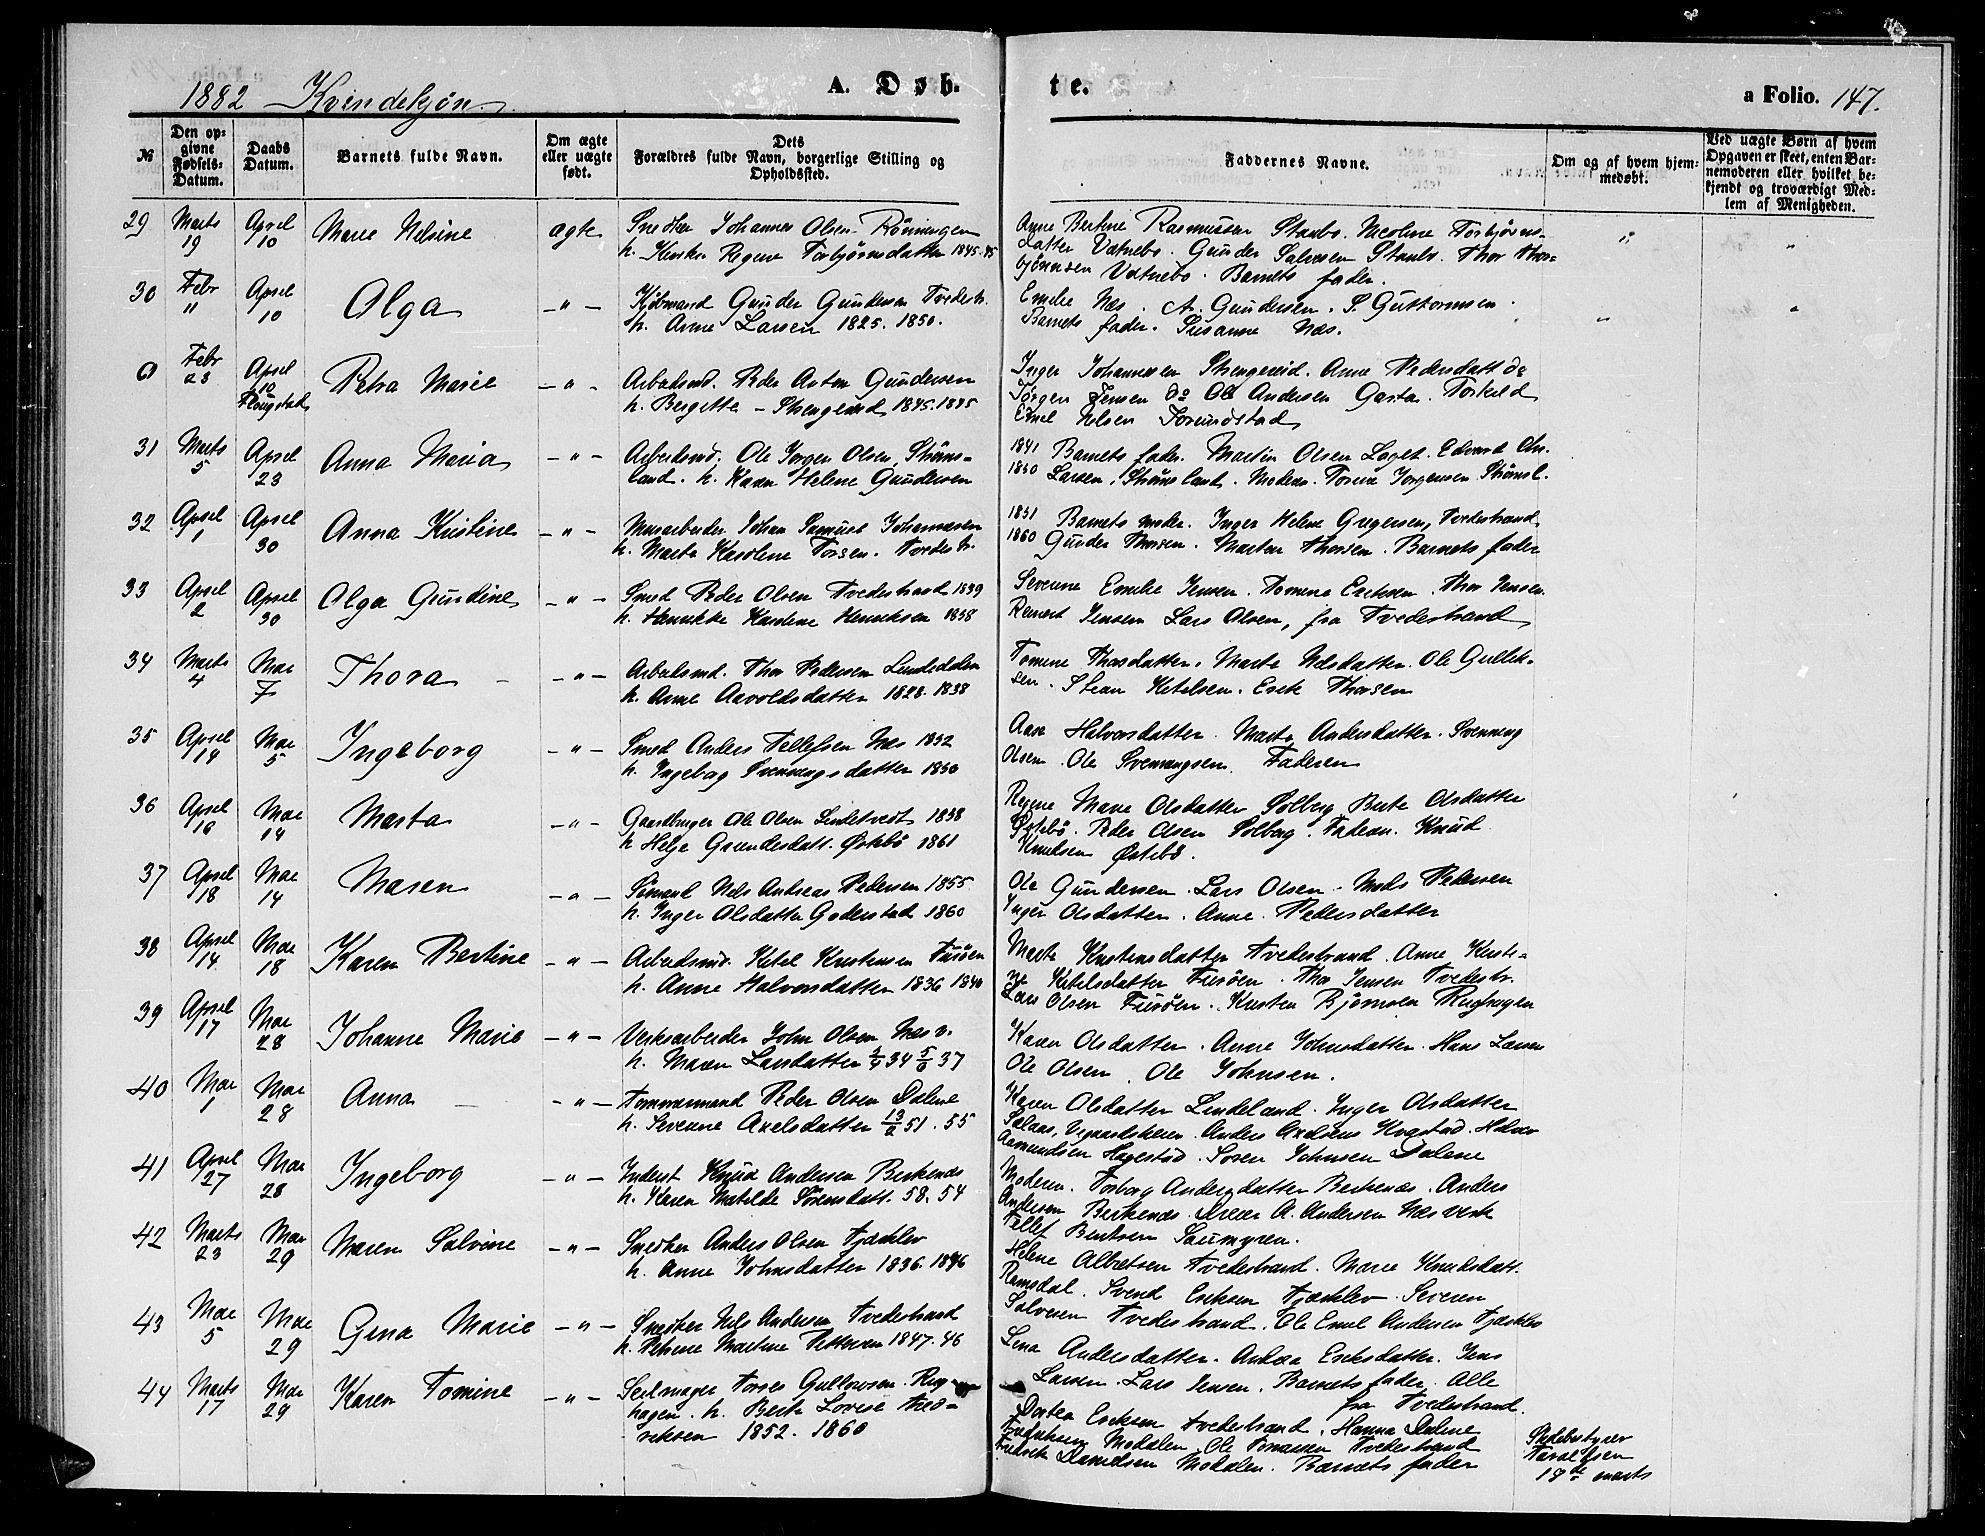 1882 Kvindekjøn
A. Døb. te. a Folio. 147.
№ Den opgivne Fødsels-Datum. Daabs Datum. Barnets fulde Navn. Om ægte eller uægte født. Dets Forældres fulde Navn, borgerlige Stilling og Opholdssted. Faddernes Navne. Om og af hvem hjemmedøbt. Ved uægte Børn af hvem Opgaven er skeet, enten Barnemoderen eller hvilket bekjendt og troværdigt Medlem af Menigheden.
29 Marts 19 April 10 Marie Nilsine ægte Snedker Johannes Olsen Rönningen
h. Regine Torbjörnsdatter 1845. 45
Anne Bertine Rasmussen Staubo. Nicoline Torbjörns-
datter Vatnebo. Gunder Salvesen Staubo. Thor Thor-
björnsen Vatnebo. Barnets fader.
30 Febr 11 April 10 Olga — " — Kjöbmand Gunder Gundersen Tvedestr.
h. Anne Larsen 1825. 1850.
Emelie Næs. A. Gundersen. S. Guttormsen.
Barnets fader. Susanne Næs.
0 Febr 23 April 10 Flougstad Petra Marie — " — Arbeidsmd. Peder Anton Gundersen
h. Bergitte - Strengereid 1845. 1845
Inger Johannesen Strengereid. Anne Pedersdatt do
Jörgen Jensen do Ole Andersen Garta. Torkild
Emil Nilsen
31 Marts 5 April 23 Anna Maria — " — Arbeidsmd. Ole Jörgen Olsen, Ströms-
land. h. Karen Helene Gundersen
1841 Barnets fader. Martin Olsen Laget. Edvard Chr.
1850 Larsen, Strömsland. Moderen. Torine Jörgensen Strömsl.
32 April 1 April 30 Anna Kristine — " — Murarbeider Johan Samuel Johannesen
h. Marta Karoline Torsen. Tvedestr.
1851 Barnets moder. Inger Helene Gregersen, Tvedestrand
1860 Gunder Thorsen. Morten Thorsen. Barnets fader
33 April 2 April 30 Olga Gundine — " — Smed Peder Olsen Tvedestrand 1839
h. Henrikke Karoline Henriksen 1838
Severine Emelie Jensen. Tomine Eriksen. Thor Jensen.
Reinert Jensen Lars Olsen, fra Tvedestrand
34 Marts 4 Mai 7 Thora — " — Arbeidsmd. Thor Pedersen Lindedalen
h. Anne Aavoldsdatter 1828. 1838
Tomine Thorsdatter. Marte Nilsdatter. Ole Gullik-
sen. Stean Ketilsen. Erik Thorsen
35 April 14 Mai 5 Ingeborg — " — Smed Anders Tellefsen Næs 1832
h. Ingeborg Svenningsdatter 1850
Aase Halvorsdatter. Marte Andersdatter. Svenning
Olsen. Ole Svenningsen. Faderen
36 April 16 Mai 14 Marta — " — Gaardbruger Ole Olsen Lindtveit 1838
h. Helje Gundersdatt. Östebö 1861
Regine Marie Olsdatter Solberg Berte Olsdatter
Östebö. Peder Olsen Solberg. Faderen. Knud
Knudsen Östebö.
37 April 18 Mai 14 Maren — " — Sömand Nils Andreas Pedersen 1855
h. Inger Olsdatter Goderstad 1860
Ole Gundersen. Lars Olsen. Nils Pedersen
Inger Olsdatter. Anne Pedersdatter
38 April 14 Mai 18 Karen Bertine — " — Arbeidsmd. Ketil Kristensen Furöen
h. Anne Halvorsdatter 1836 1840
Marte Kristensdatter Tvedestrand. Anne Kirsti-
ne Ketilsdatter Furöen. Thor Jensen Tvedestr.
Lars Olsen Furöen. Kristen Björnsen Rughagen
39 April 17 Mai 28 Johanne Marie — " — Verksarbeider John Olsen Næs v.
h. Maren Larsdatter 34 37
Karen Olsdatter. Anne Johnsdatter. Hans Larsen
Ole Olsen. Ole Johnsen.
40 Mai 1 Mai 28 Anna — " — Tømmermand Peder Olsen Dalene
h. Severine Axelsdatter 13/2 51. 55
Karen Olsdatter Lindeland. Inger Olsdatter
Anders Axelsen Kvastad. Halvor
Aamundsen Hagestad. Soren Johnsen Dalene
41 April 27 Mai 28 Ingeborg — " — Inderst Knud Andersen Berkenæs
h. Karen Matilde Sörensdatt. 58. 54
Moderen. Torborg Andersdatter Berkenæs. Anders
Andersen Berkenæs. A. Andersen Næs verk
Tellef Bentsen Saumyren.
42 Marts 23 Mai 29 Maren Salvine — " — Snedker Anders Olsen Fjæhlev
h. Anne Johnsdatter 1836. 1846
Helene Albretsen Tvedestrand. Marie Knudsdatt.
Ramsdal. Svend Eriksen Severin
Salvesen Tvedestrand. Ole Emil Andersen
43 Mai 5 Mai 29 Gina Marie — " — Snedker Nils Andersen Tvedestrand
h. Petrine Martine Pettersen 1847. 46
Lina Andersdatter. Andrea Eriksdatter. Jens
Larsen. Lars Jensen. Barnets fader. Alle
fra Tvedestrand.
44 Marts 17 Mai 29 Karen Tomine — " — Seilmager Torres Gullovsen. Rug-
hagen. h. Berte Lovise Fred-
riksen 1852. 1860
Dortea Eriksen Tvedestrand. Hanna Dalene
Fredriksen Modalen. Ole Tvedestrand
Fredrik Danielsen Modalen. Barnets fader
18de marts